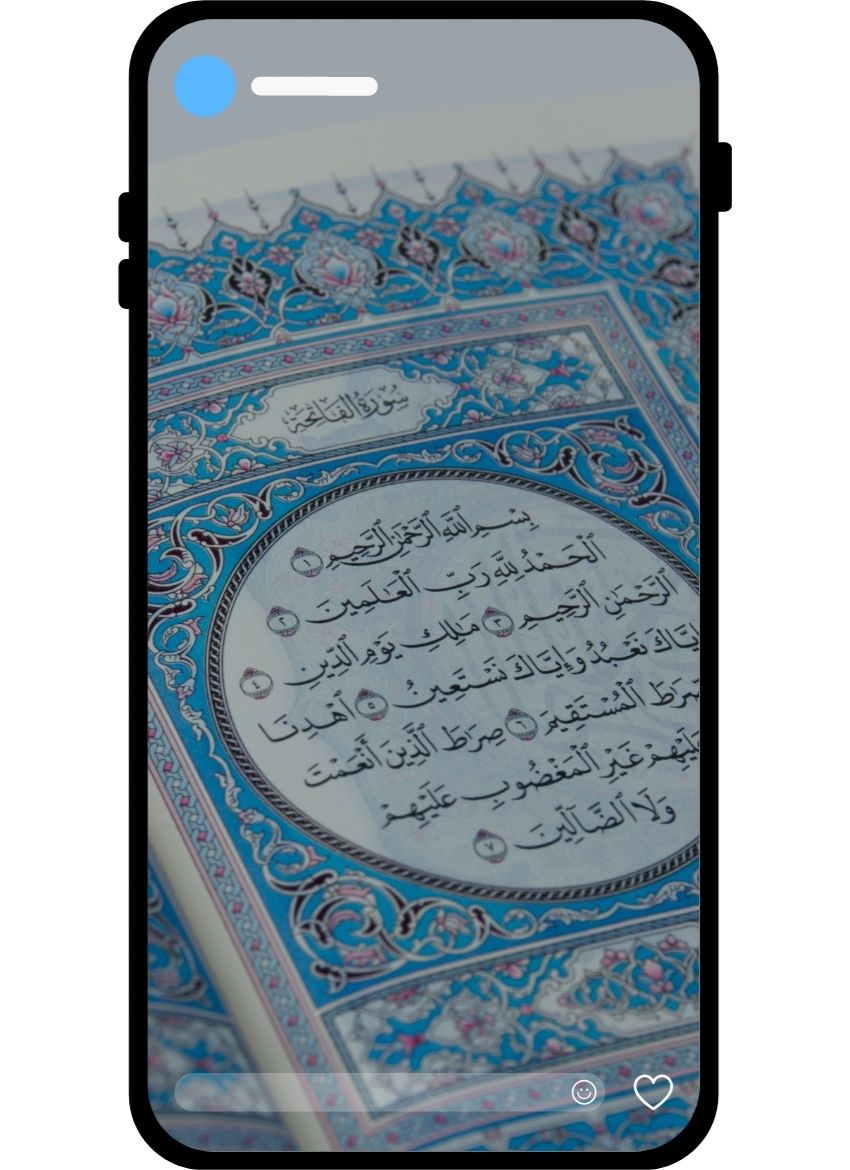 سُورَةُ الفَاتِحَة
بِسْمِ ٱللَّهِ ٱلرَّحْمَٰنِ ٱلرَّحِيمِ ١
ٱلْحَمْدُ لِلَّهِ رَبِّ ٱلْعَٰلَمِينَ ٢
ٱلرَّحْمَٰنِ ٱلرَّحِيمِ ٣ مَٰلِكِ يَوْمِ ٱلدِّينِ ٤
إِيَّاكَ نَعْبُدُ وَإِيَّاكَ نَسْتَعِينُ ٥ ٱهْدِنَا
صِّرَٰطَ ٱلْمُسْتَقِيمَ ٦ صِرَٰطَ ٱلَّذِينَ أَنْعَمْتَ
لَيْهِمْ غَيْرِ ٱلْمَغْضُوبِ عَلَيْهِمْ
وَلَا ٱلضَّآلِّينَ ٧